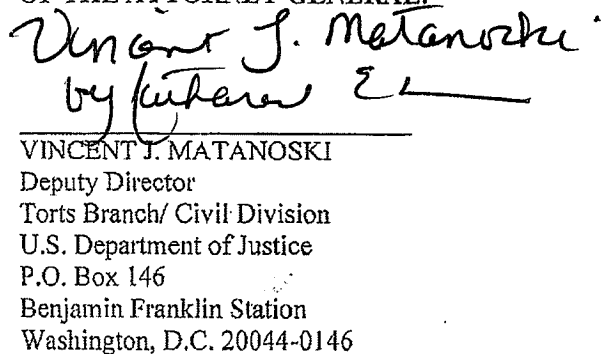 OF THE ATTORNEY GENERAL:
Vincent J. Matanoski
by
VINCENT J. MATANOSKI
Deputy Director
Torts Branch/ Civil Division
U.S. Department of Justice
P.O. Box 146
Benjamin Franklin Station
Washington, D.C. 20044-0146